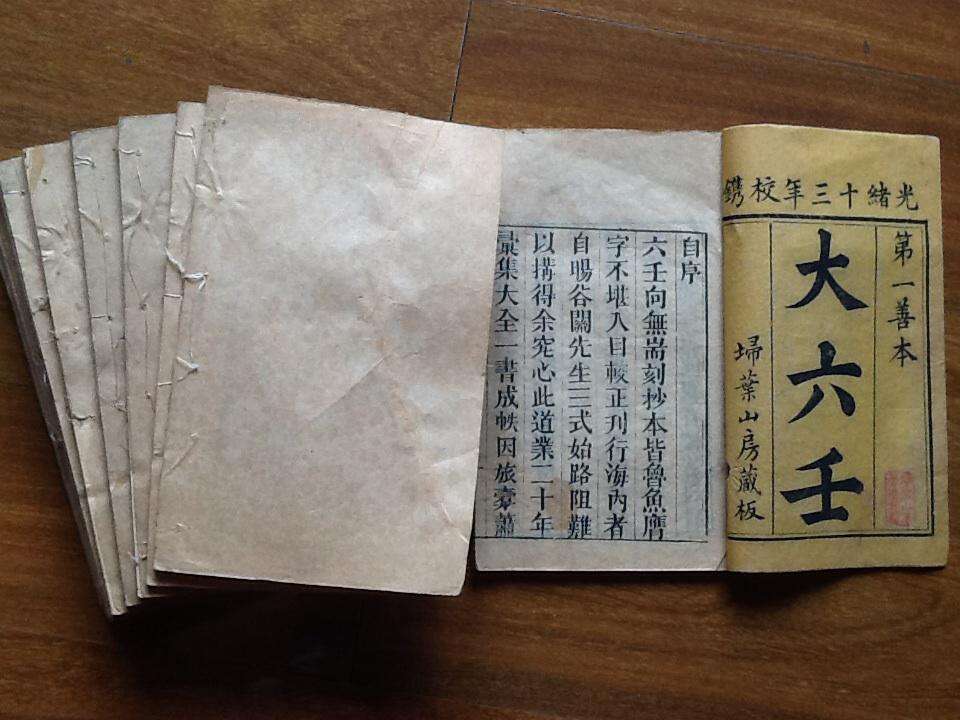 光緒十三年校鐫
第一善本
大六壬
埽葉山房藏板
自序
六壬向無耑刻抄本皆魯魚
字不堪入目較正刊行海內者
自暘谷關先生三式始路阻難
以搆得余究心此道業二十年
彚集大全一書成帙因旅橐蕭